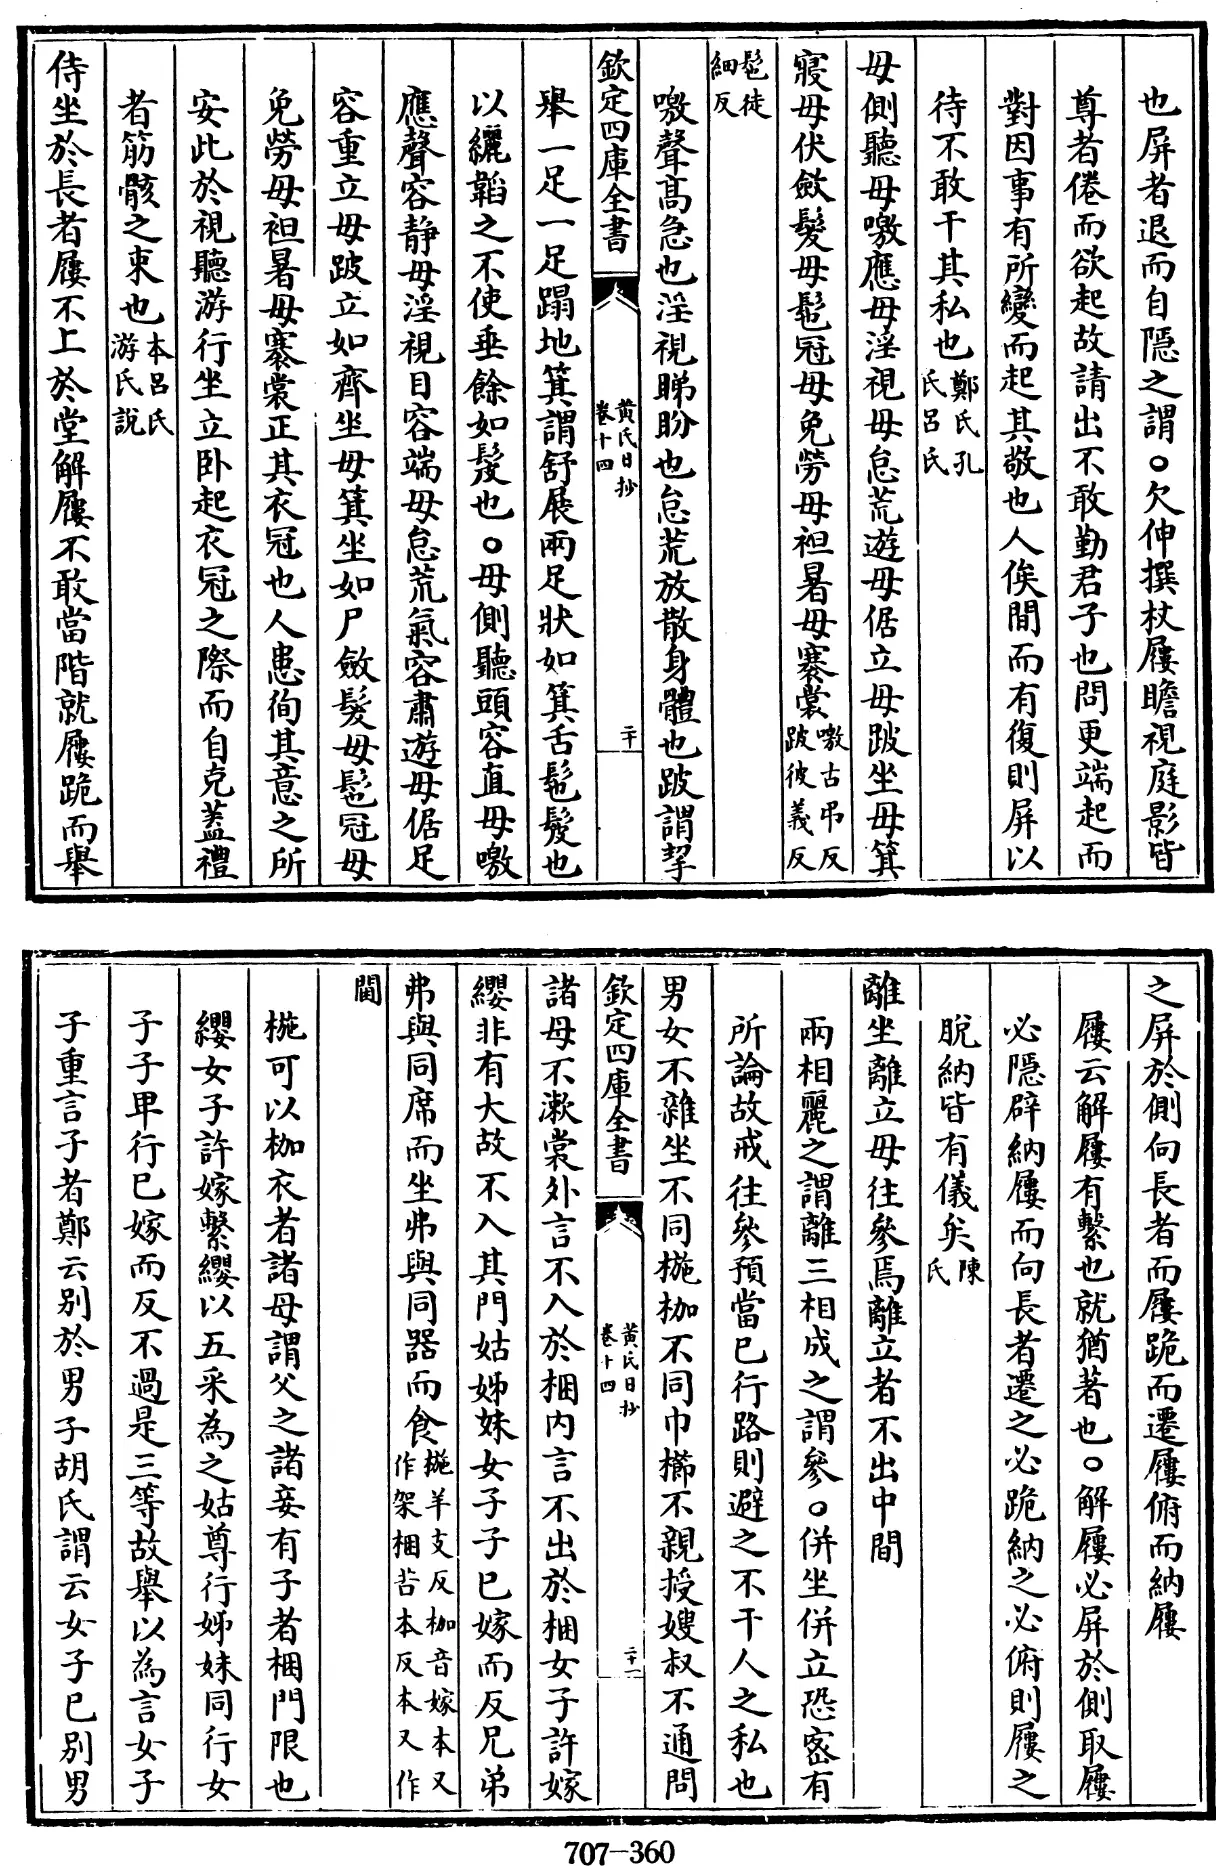 也屏者退而自隱之謂○欠伸撰杖屨瞻視庭影皆
尊者倦而欲起故請出不敢勤君子也問更端起而
對因事有所變而起其敬也人俟間而有復則屏以
待不敢干其私也鄭氏孔
氏呂氏
毋側聽毋噭應毋淫視毋怠荒遊毋倨立毋跛坐毋箕
寢毋伏斂髮毋髢冠毋免勞毋袒暑毋褰裳噭古弔反
跛彼義反
髢徒
細反
噭聲髙急也淫視睇盼也怠荒放散身體也跛謂挈
欽定四庫全書
黄氏日抄
卷十四
二十
舉一足一足蹋地箕謂舒展兩足狀如箕舌髢髲也
以纚韜之不使垂餘如髲也○毋側聽頭容直毋噭
應聲容静毋淫視目容端毋怠荒氣容肅遊毋倨足
容重立毋跛立如齊坐毋箕坐如尸斂髮毋髢冠毋
免勞毋袒暑毋褰裳正其衣冠也人患徇其意之所
安此於視聽游行坐立卧起衣冠之際而自克蓋禮
者筋骸之束也本呂氏
游氏説
侍坐於長者屨不上於堂解屨不敢當階就屨跪而舉
之屏於側向長者而屨跪而遷屨俯而納屨
屨云解屨有繫也就猶著也○解屨必屏於側取屨
必隱辟納屨而向長者遷之必跪納之必俯則屨之
脱納皆有儀矣陳
氏
離坐離立毋往參焉離立者不出中間
兩相麗之謂離三相成之謂參○併坐併立恐宻有
所論故戒往參預當已行路則避之不干人之私也
男女不雜坐不同椸枷不同巾櫛不親授嫂叔不通問
欽定四庫全書
黄氏日抄
卷十四
二十一
諸母不漱裳外言不入於梱内言不出於梱女子許嫁
纓非有大故不入其門姑姊妹女子子已嫁而反兄弟
弗與同席而坐弗與同器而食椸羊支反枷音嫁本又
作架梱苦本反本又作
閫
椸可以枷衣者諸母謂父之諸妾有子者梱門限也
纓女子許嫁繫纓以五采為之姑尊行姊妹同行女
子子卑行已嫁而反不過是三等故舉以為言女子
子重言子者鄭云别於男子胡氏謂云女子已别男
707-360